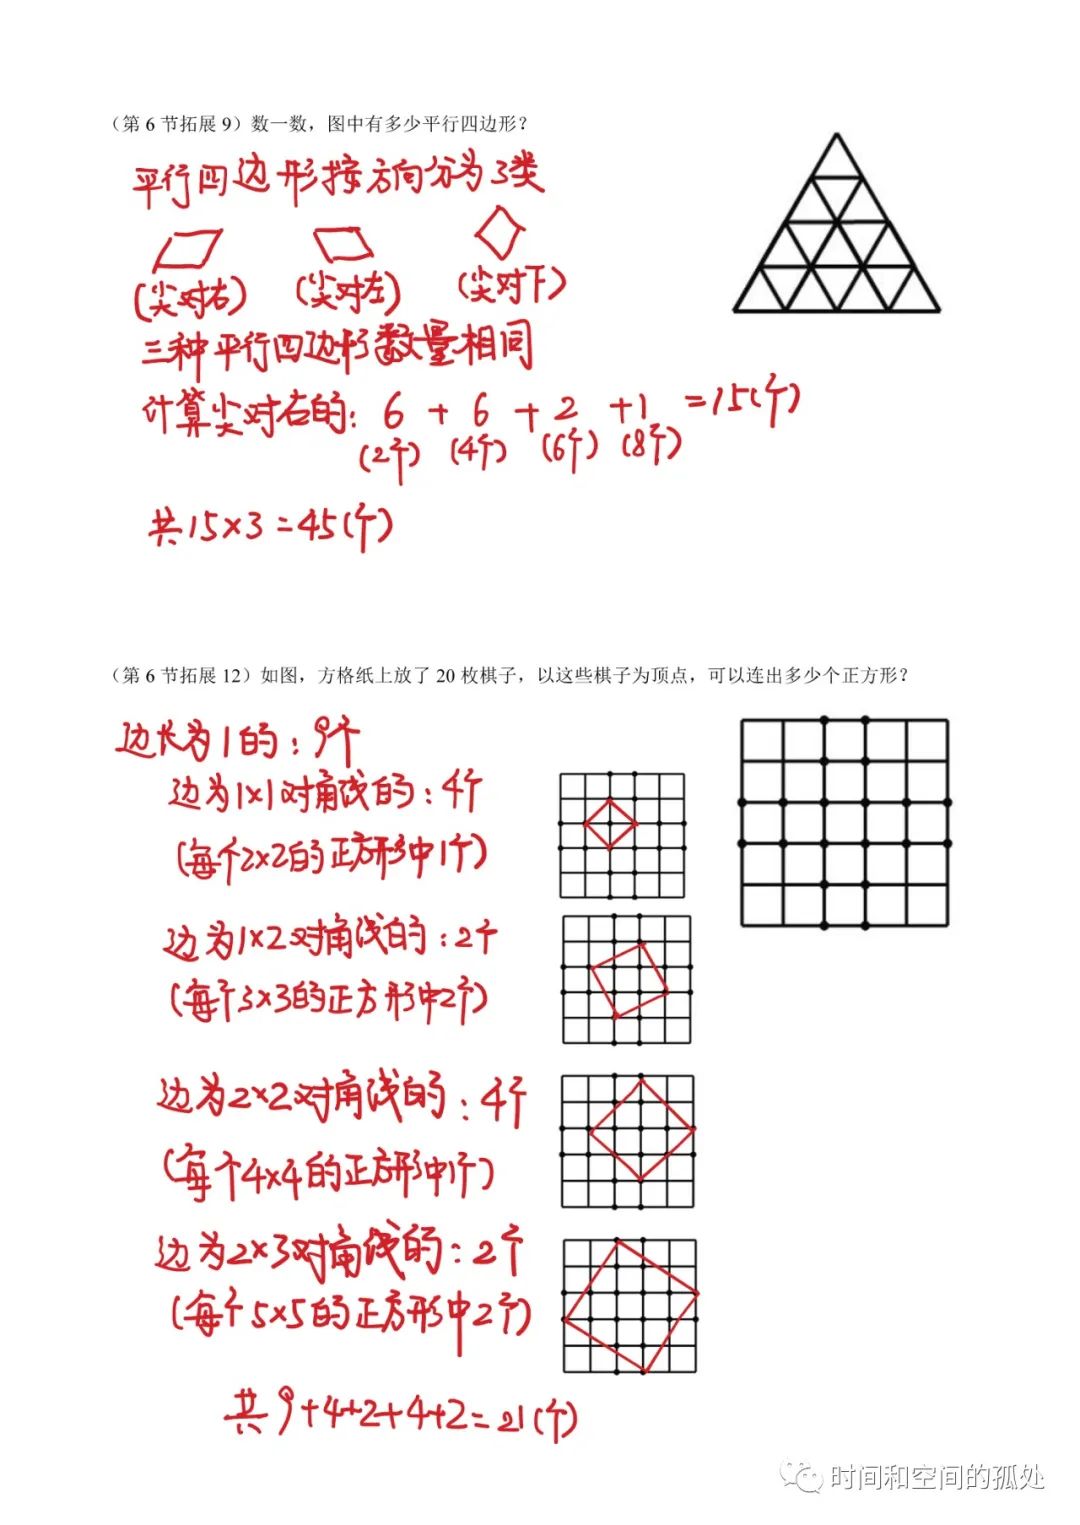 （第 6 节拓展 9）数一数，图中有多少平行四边形？
平行四边形按方向分为3类
(尖对右) (尖对左) (尖对下)
三种平行四边形数量相同
计算尖对右的: 6 + 6 + 2 + 1 = 15(个)
(2个) (4个) (6个) (8个)
共15×3=45(个)
（第 6 节拓展 12）如图，方格纸上放了 20 枚棋子，以这些棋子为顶点，可以连出多少个正方形？
边长为1的: 9个
边为1×1对角线的: 4个
(每个2×2的正方形中1个)
边为1×2对角线的: 2个
(每个3×3的正方形中2个)
边为2×2对角线的: 4个
(每个4×4的正方形中1个)
边为2×3对角线的: 2个
(每个5×5的正方形中2个)
共9+4+2+4+2=21(个)
时间和空间的孤处